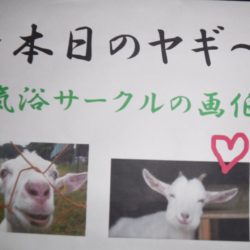 本日のヤギ～
気浴サークルの画伯